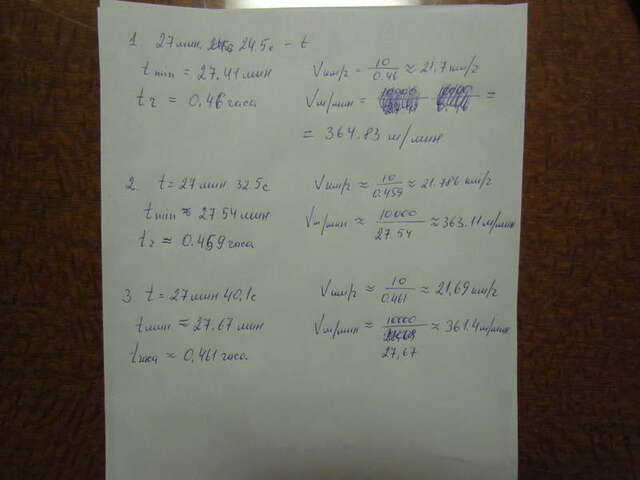 1 27 мин, 24.5с - t
tmin = 27.41 мин
tг = 0,46 часа
Vкм/г = 10/0.46 ≈ 21,7 км/г
Vм/мин = =
= 364.83 м/мин
2. t = 27 мин 32 5с
tmin ≈ 27 54 мин
tг ≈ 0.459 часа
Vкм/г ≈ 10/0.459 ≈ 21.786 км/г
Vм/мин ≈ 10000/27.54 ≈ 363.11 м/мин
3 t = 27 мин 40,1с
tмин ≈ 27.67 мин
tчаса ≈ 0,461 часа
Vкм/г ≈ 10/0.461 ≈ 21,69 км/г
Vм/мин ≈ 10000/27,67 ≈ 361.4 м/мин